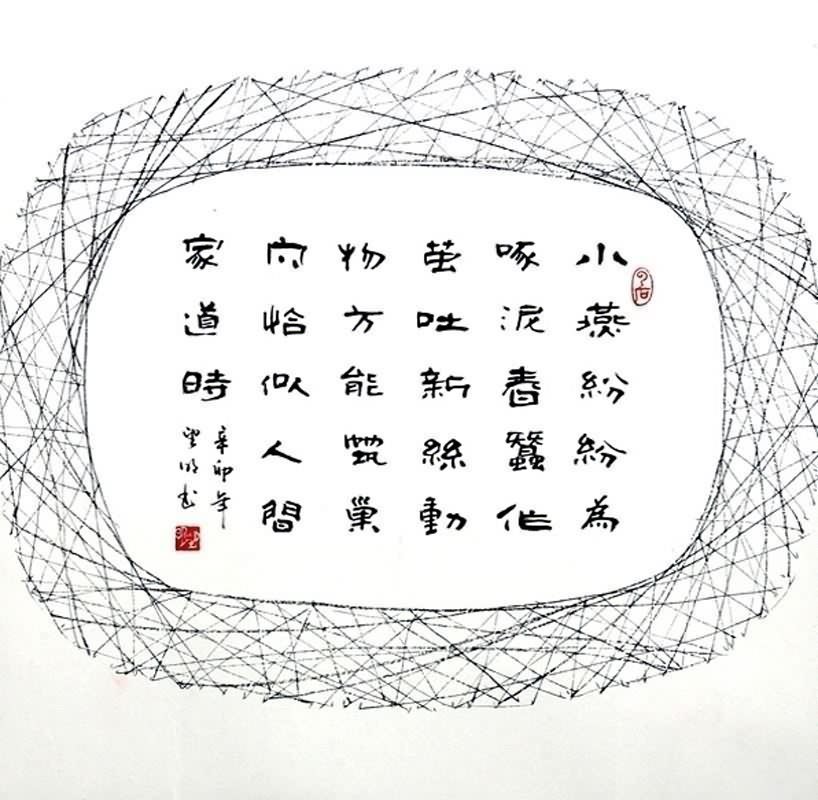 小燕紛紛為
啄泥春蠶作
茧吐新絲動
物方能巢
穴恰似人間
家道時
辛卯年
望明书